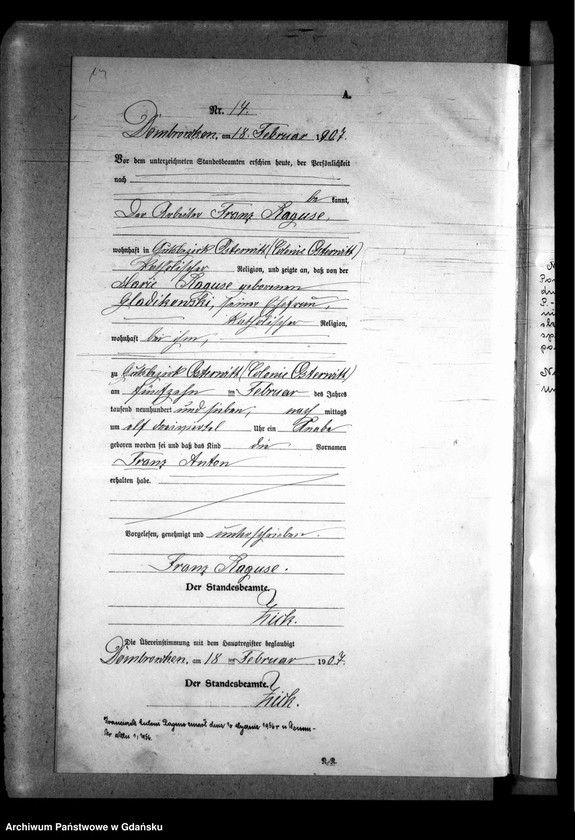 A.
Nr. 14.
Dombrowken, am 18. Februar 1907.
Vor dem unterzeichneten Standesbeamten erschien heute, der Persönlichkeit
nach
be kannt,
Der Arbeiter Franz Raguse,
wohnhaft in Gutsbezirk Osterwitt (Colonie Osterwitt)
Katholischer Religion, und zeigte an, daß von der
Marie Raguse geborenen
Gladikowski, seiner Ehefrau,
Katholischer Religion,
wohnhaft bei ihm,
zu Gutsbezirk Osterwitt (Colonie Osterwitt)
am fünfzehn im Februar des Jahres
tausend neunhundert und sieben, nach mittags
um elf dreiviertel Uhr ein Knabe
geboren worden sei und daß das Kind die Vornamen
Franz Anton
erhalten habe.
Vorgelesen, genehmigt und unterschrieben.
Franz Raguse.
Der Standesbeamte.
Zich.
Die Übereinstimmung mit dem Hauptregister beglaubigt
Dombrowken, am 18 im Februar 1907.
Der Standesbeamte.
Zich.
Nr aktu
Archiwum Państwowe w Gdańsku